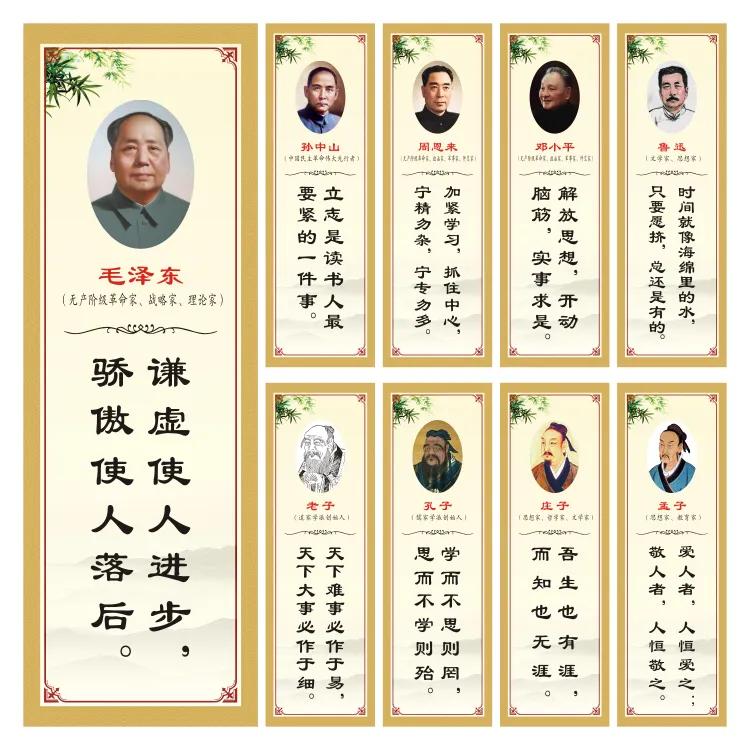 毛泽东
（无产阶级革命家、战略家、理论家）
谦虚使人进步，
骄傲使人落后。
孙中山
（中国民主革命伟大先行者）
立志是读书人最
要紧的一件事。
周恩来
加紧学习，抓住中心，
宁精勿杂，宁专勿多。
邓小平
解放思想，开动
脑筋，实事求是。
鲁迅
（文学家、思想家）
时间就像海绵里的水，
只要愿挤，总还是有的。
老子
（道家学派创始人）
天下难事必作于易，
天下大事必作于细。
孔子
（儒家学派创始人）
学而不思则罔，
思而不学则殆。
庄子
（思想家、哲学家、文学家）
吾生也有涯，
而知也无涯。
孟子
（思想家、教育家）
爱人者，人恒爱之；
敬人者，人恒敬之。